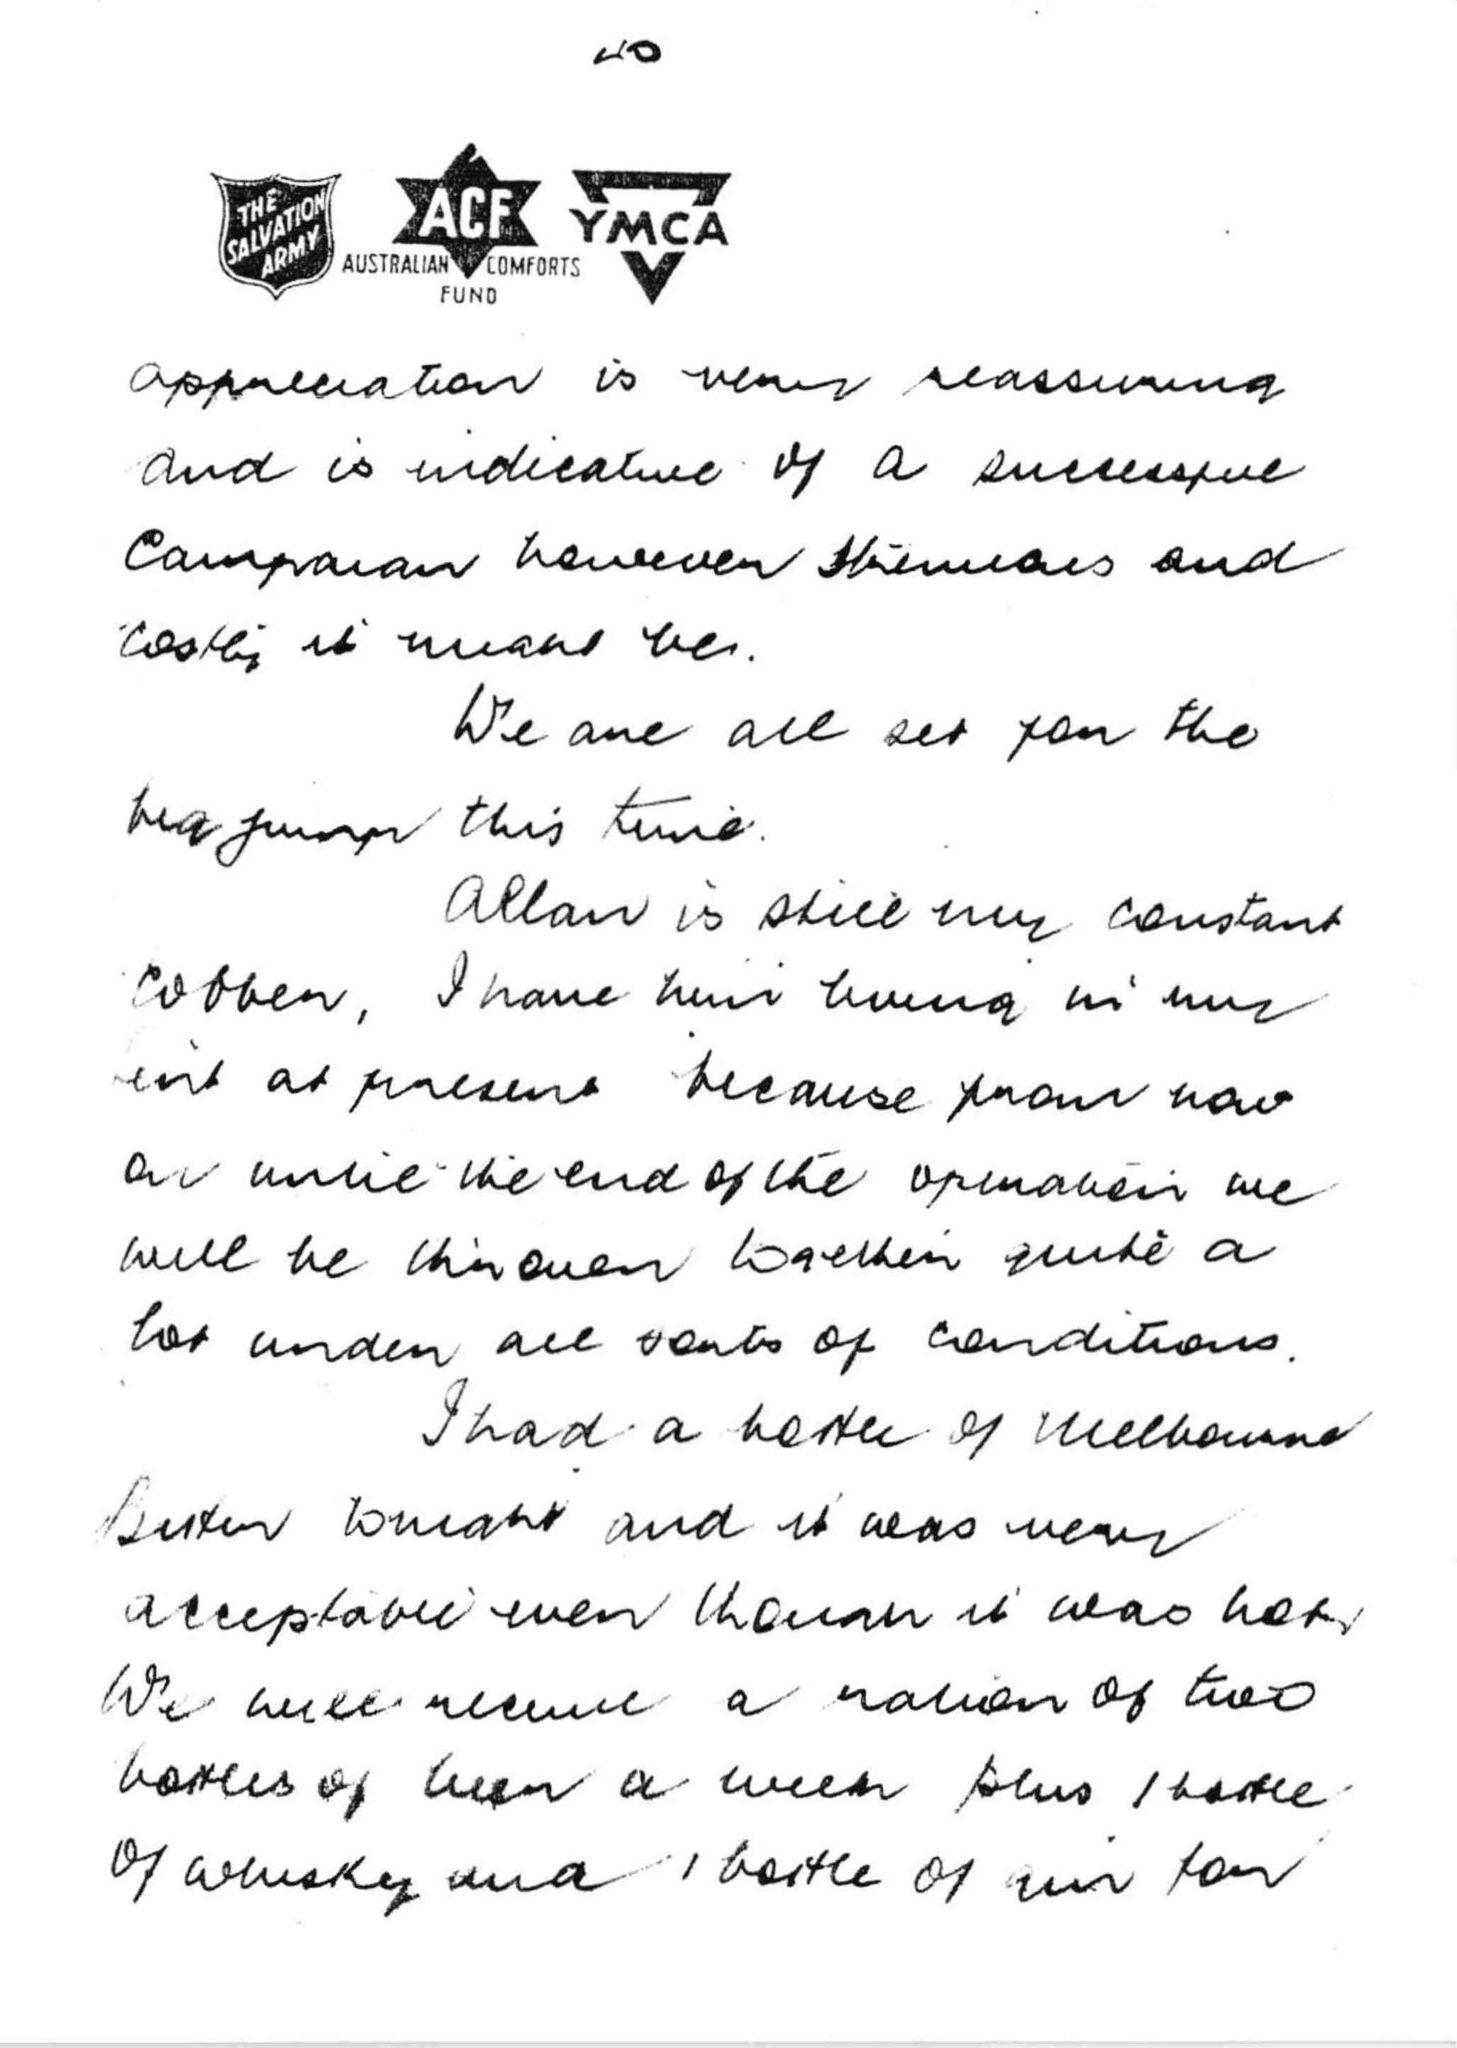 40
THE
SALVATION
ARMY
ACF
AUSTRALIAN COMFORTS
FUND
YMCA
appreciation is very reassuring
and is indicative of a successful
Campaign however strenuous and
costly it might be.
We are all set for the
big jump this time.
Allan is still my constant
cobber, I have him living in my
tent at present because from now
on until the end of the operation we
will be thrown together quite a
lot under all sorts of conditions.
I had a bottle of Melbourne
Bitter tonight and it was very
acceptable even though it was hot.
We will receive a ration of two
bottles of beer a week plus 1 bottle
of whisky and 1 bottle of gin for